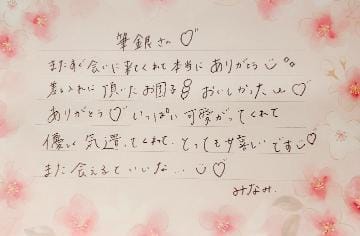 筆銀さん♡
またすぐ会いに来てくれて本当にありがとう
差し入れに頂いたお団子 おいしかった♡
ありがとう♡いっぱい可愛がってくれて
優しく気遣ってくれて、とっても嬉しいです♡
また会えるといいな…♡
みなみ.